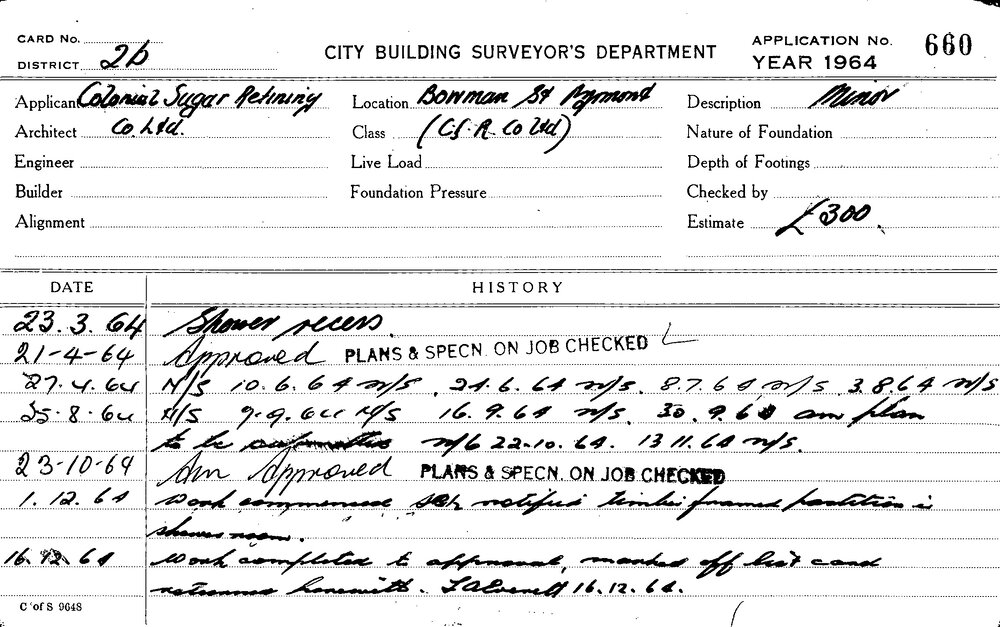 CARD No.
DISTRICT 2b
CITY BUILDING SURVEYOR'S DEPARTMENT
APPLICATION No. 660
YEAR 1964
Applicant Colonial Sugar Refining
Location Bowman St Pyrmont
Description Minor
Architect Co Ltd.
Class (C.S.R. Co Ltd)
Nature of Foundation
Engineer
Live Load
Depth of Footings
Builder
Foundation Pressure
Checked by
Alignment
Estimate £300.
DATE HISTORY
23.3.64 Shower recess.
21-4-64 Approved PLANS & SPECN. ON JOB CHECKED
27.4.64 N/S 10.6.64 N/S. 24.6.64 N/S. 8.7.64 N/S. 3.8.64 N/S
25.8.64 N/S 9.9.64 N/S 16.9.64 N/S. 30.9.64 am plan
to be submitted N/S 22.10.64. 13 11.64 N/S.
23-10-64 Am Approved PLANS & SPECN. ON JOB CHECKED
1.12.64 Work commenced notified timber framed partition in
shower room.
16.12.64 Work completed to approval, marked off list card
returned herewith. 16.12.64.
C of S 9648